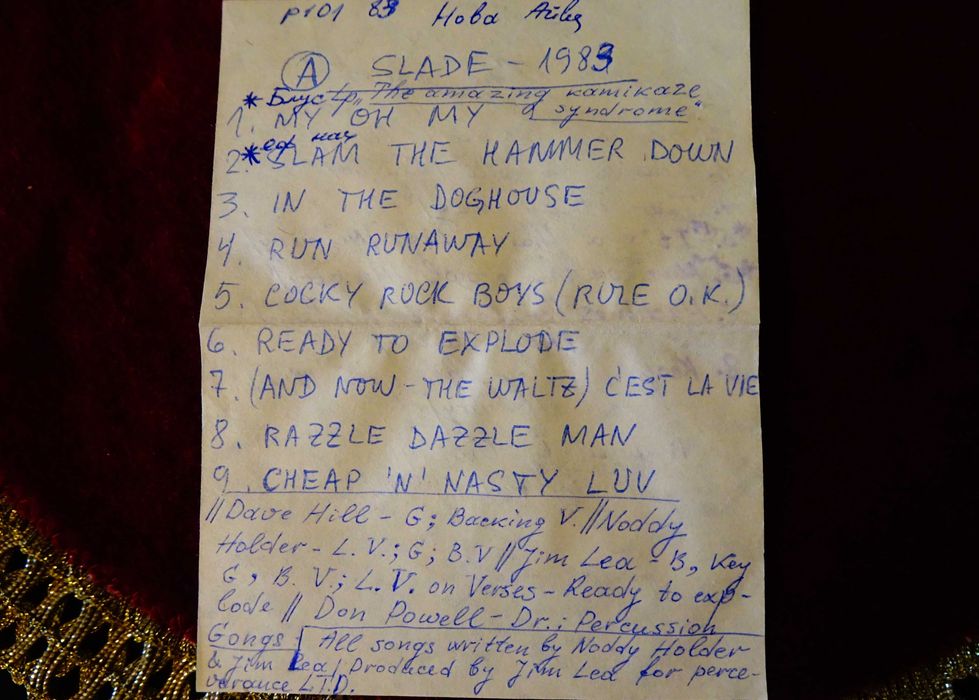 83 Нова
Ⓐ SLADE - 1983
* Блус гр „The amazing kamikaze
syndrome"
1. MY OH MY
2. * SLAM THE HAMMER DOWN
3. IN THE DOGHOUSE
4. RUN RUNAWAY
5. COCKY ROCK BOYS (RULE O.K.)
6. READY TO EXPLODE
7. (AND NOW - THE WALTZ) C'EST LA VIE
8. RAZZLE DAZZLE MAN
9. CHEAP 'N' NASTY LUV
// Dave Hill - G; Backing V. // Noddy
Holder - L. V.; G; B.V // Jim Lea - B, Key
G, B. V.; L.V. on Verses - Ready to exp-
lode // Don Powell - Dr.; Percussion
Gongs All songs written by Noddy Holder
& Jim Lea / Produced by Jim Lea for perce-
verance L.T.D.